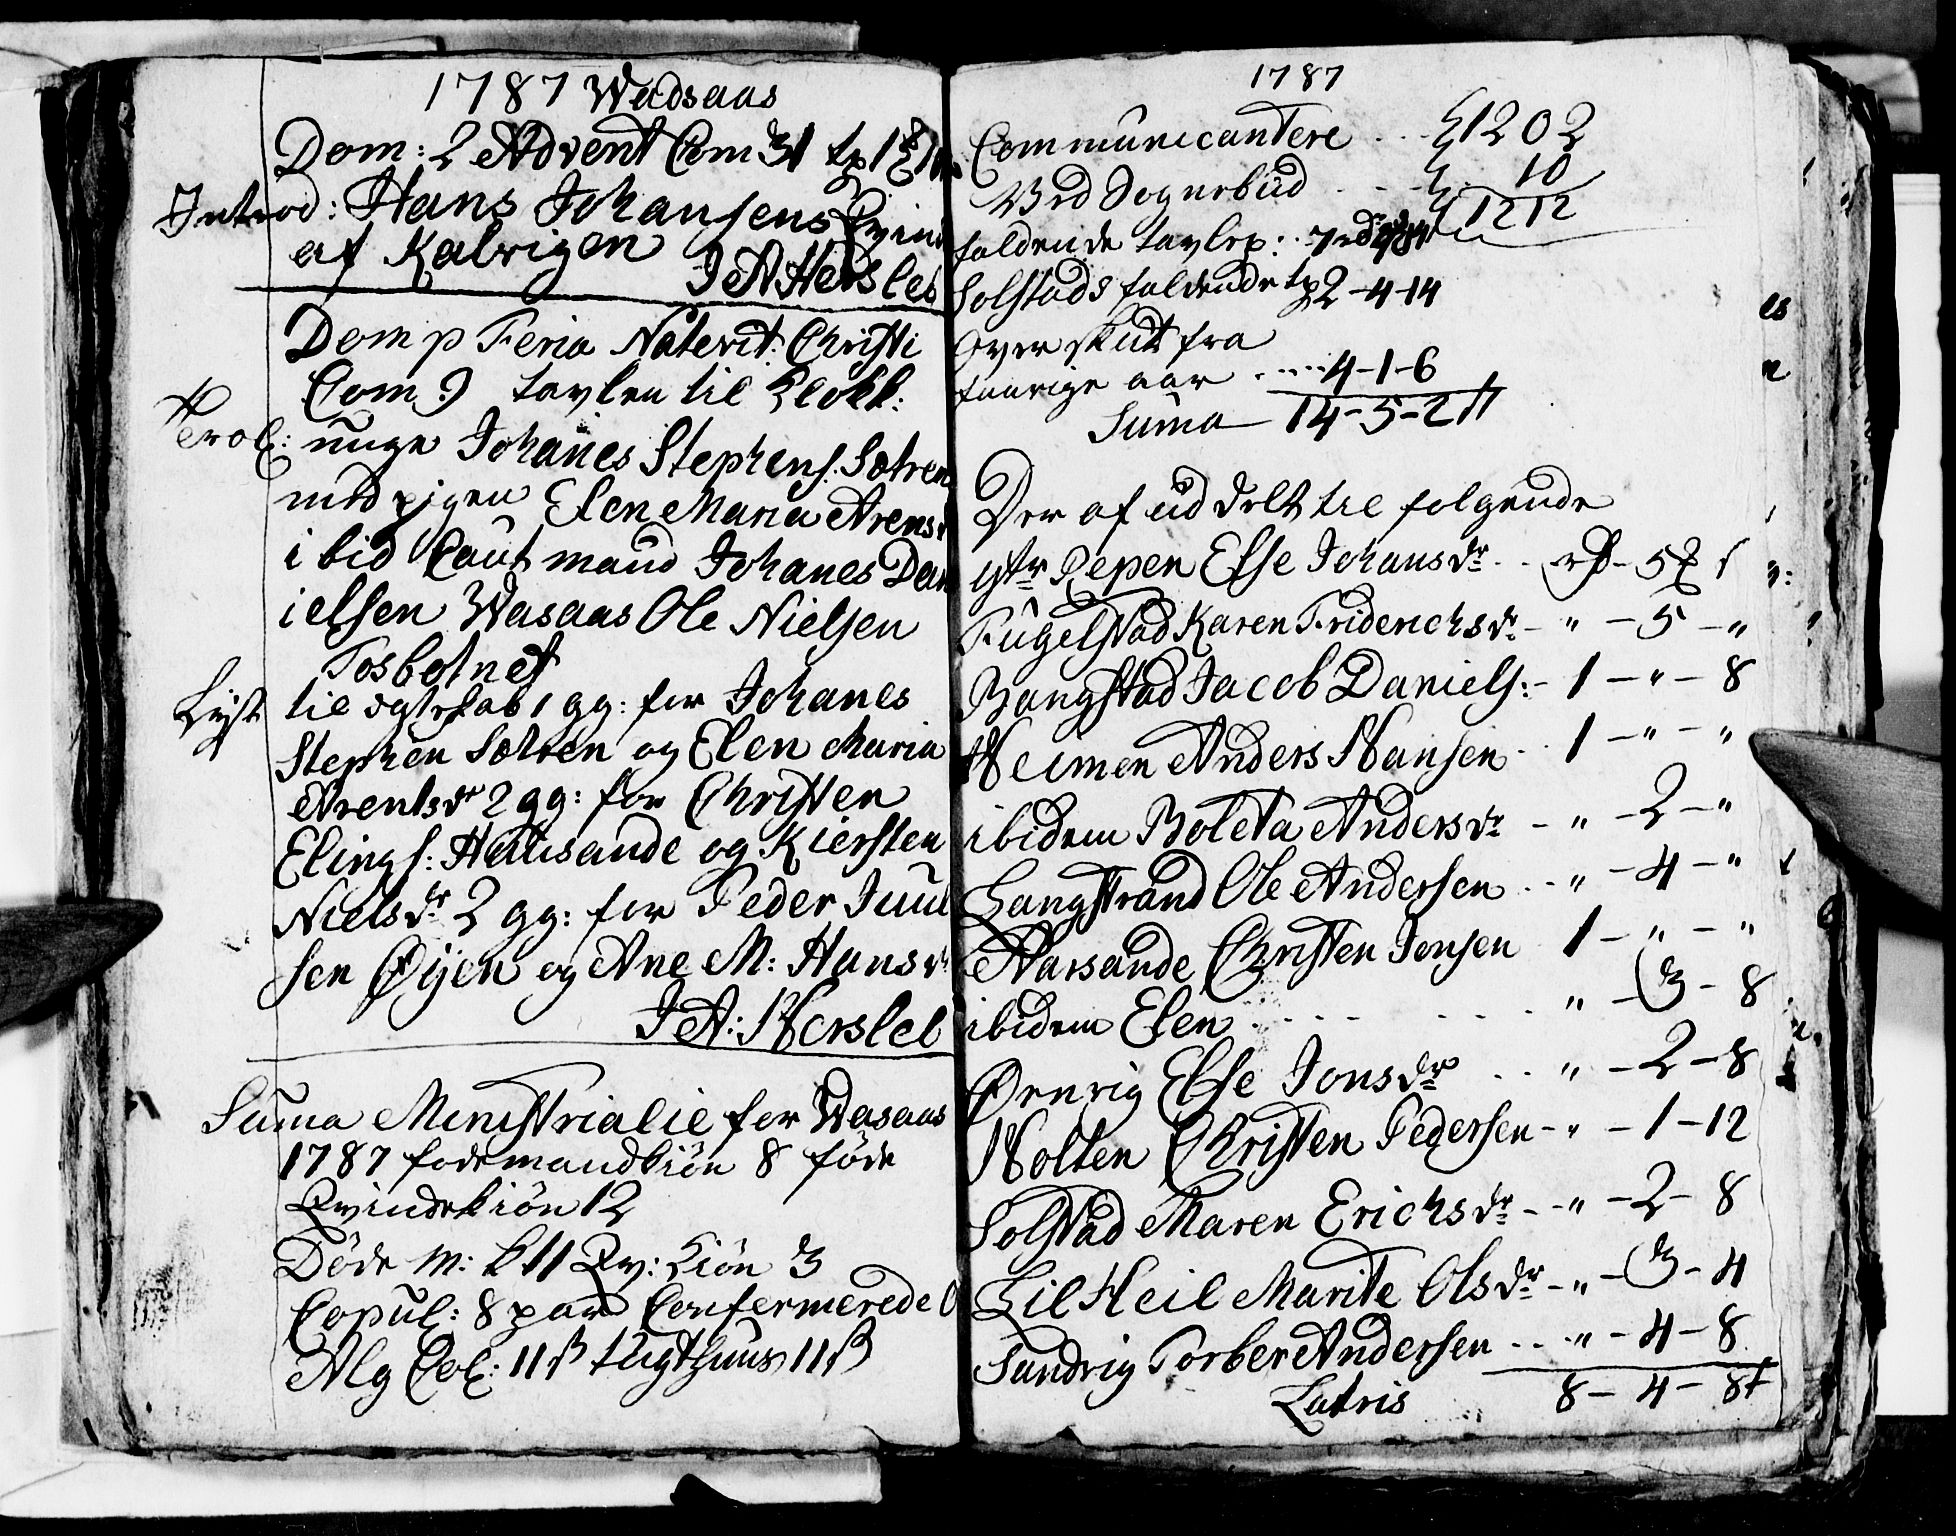 1787 Wadsaas
Dom: 2 Advent Com 31
Introd: Hans Johansens Qvin
af Kalvigen
J A Hersleb
Dom p Feria Nativit: Christi
Com 9 tavlen til Klokk:
Trol: unge Johanes Stephens. Sætren
med pigen Elen Maria Arens
ibid Caut mænd Johanes Dan
ielsen Wasaas Ole Nielsen
Tosbotnet
Lyst til egteskab 1 gg: for Johanes
Stephen Sætren og Elen Maria
Arentsdr 2 gg: for Christen
Elings: Halsande og Kiersten
Nielsdr 2 gg: for Peder Juul
sen Øijen og Ane M: Hansd
J A: Hersleb
Suma Ministrialie for Wasaas
1787 føde mandkiön 8 føde
Qvindekiön 12
Døde M: k 11 Qv: Kiön 3
Copul: 8 par Confermerede 0
Alg Col: 11 ß tugthuus 11 ß
1787
Communicantere 1202
Ved Sognebud 10
1212
faldende tavlep: 7
Solstads faldende tp 2-4-14
Overskut fra
forrige aar 4-1-6
Suma 14-5-2 ß
Der af uddelt til følgende
Repen Else Johansdr - 5
Fugelstad Karen Friderichsdr - " - 5 - "
Bangstad Jacob Daniels: - 1 - " - 8
Heimen Anders Hansen 1 - " - "
ibidem Boleta Andersdr - " - 2 - "
Langstrand Ole Andersen " - 4 - "
Aarsande Christen Jonsen 1 - " - "
ibidem Elen " - 3 - 8
Ørnvig Else Jonsdr " - 2 - 8
Holten Christen Pedersen - " - 1 - 12
Solstad Maren Erichsdr - " - 2 - 8
Lil Heil Marite Olsdr - " - 3 - 4
Sundvig Torber Andersen " - 4 - 8
Latris 8 - 4 - 8 ß